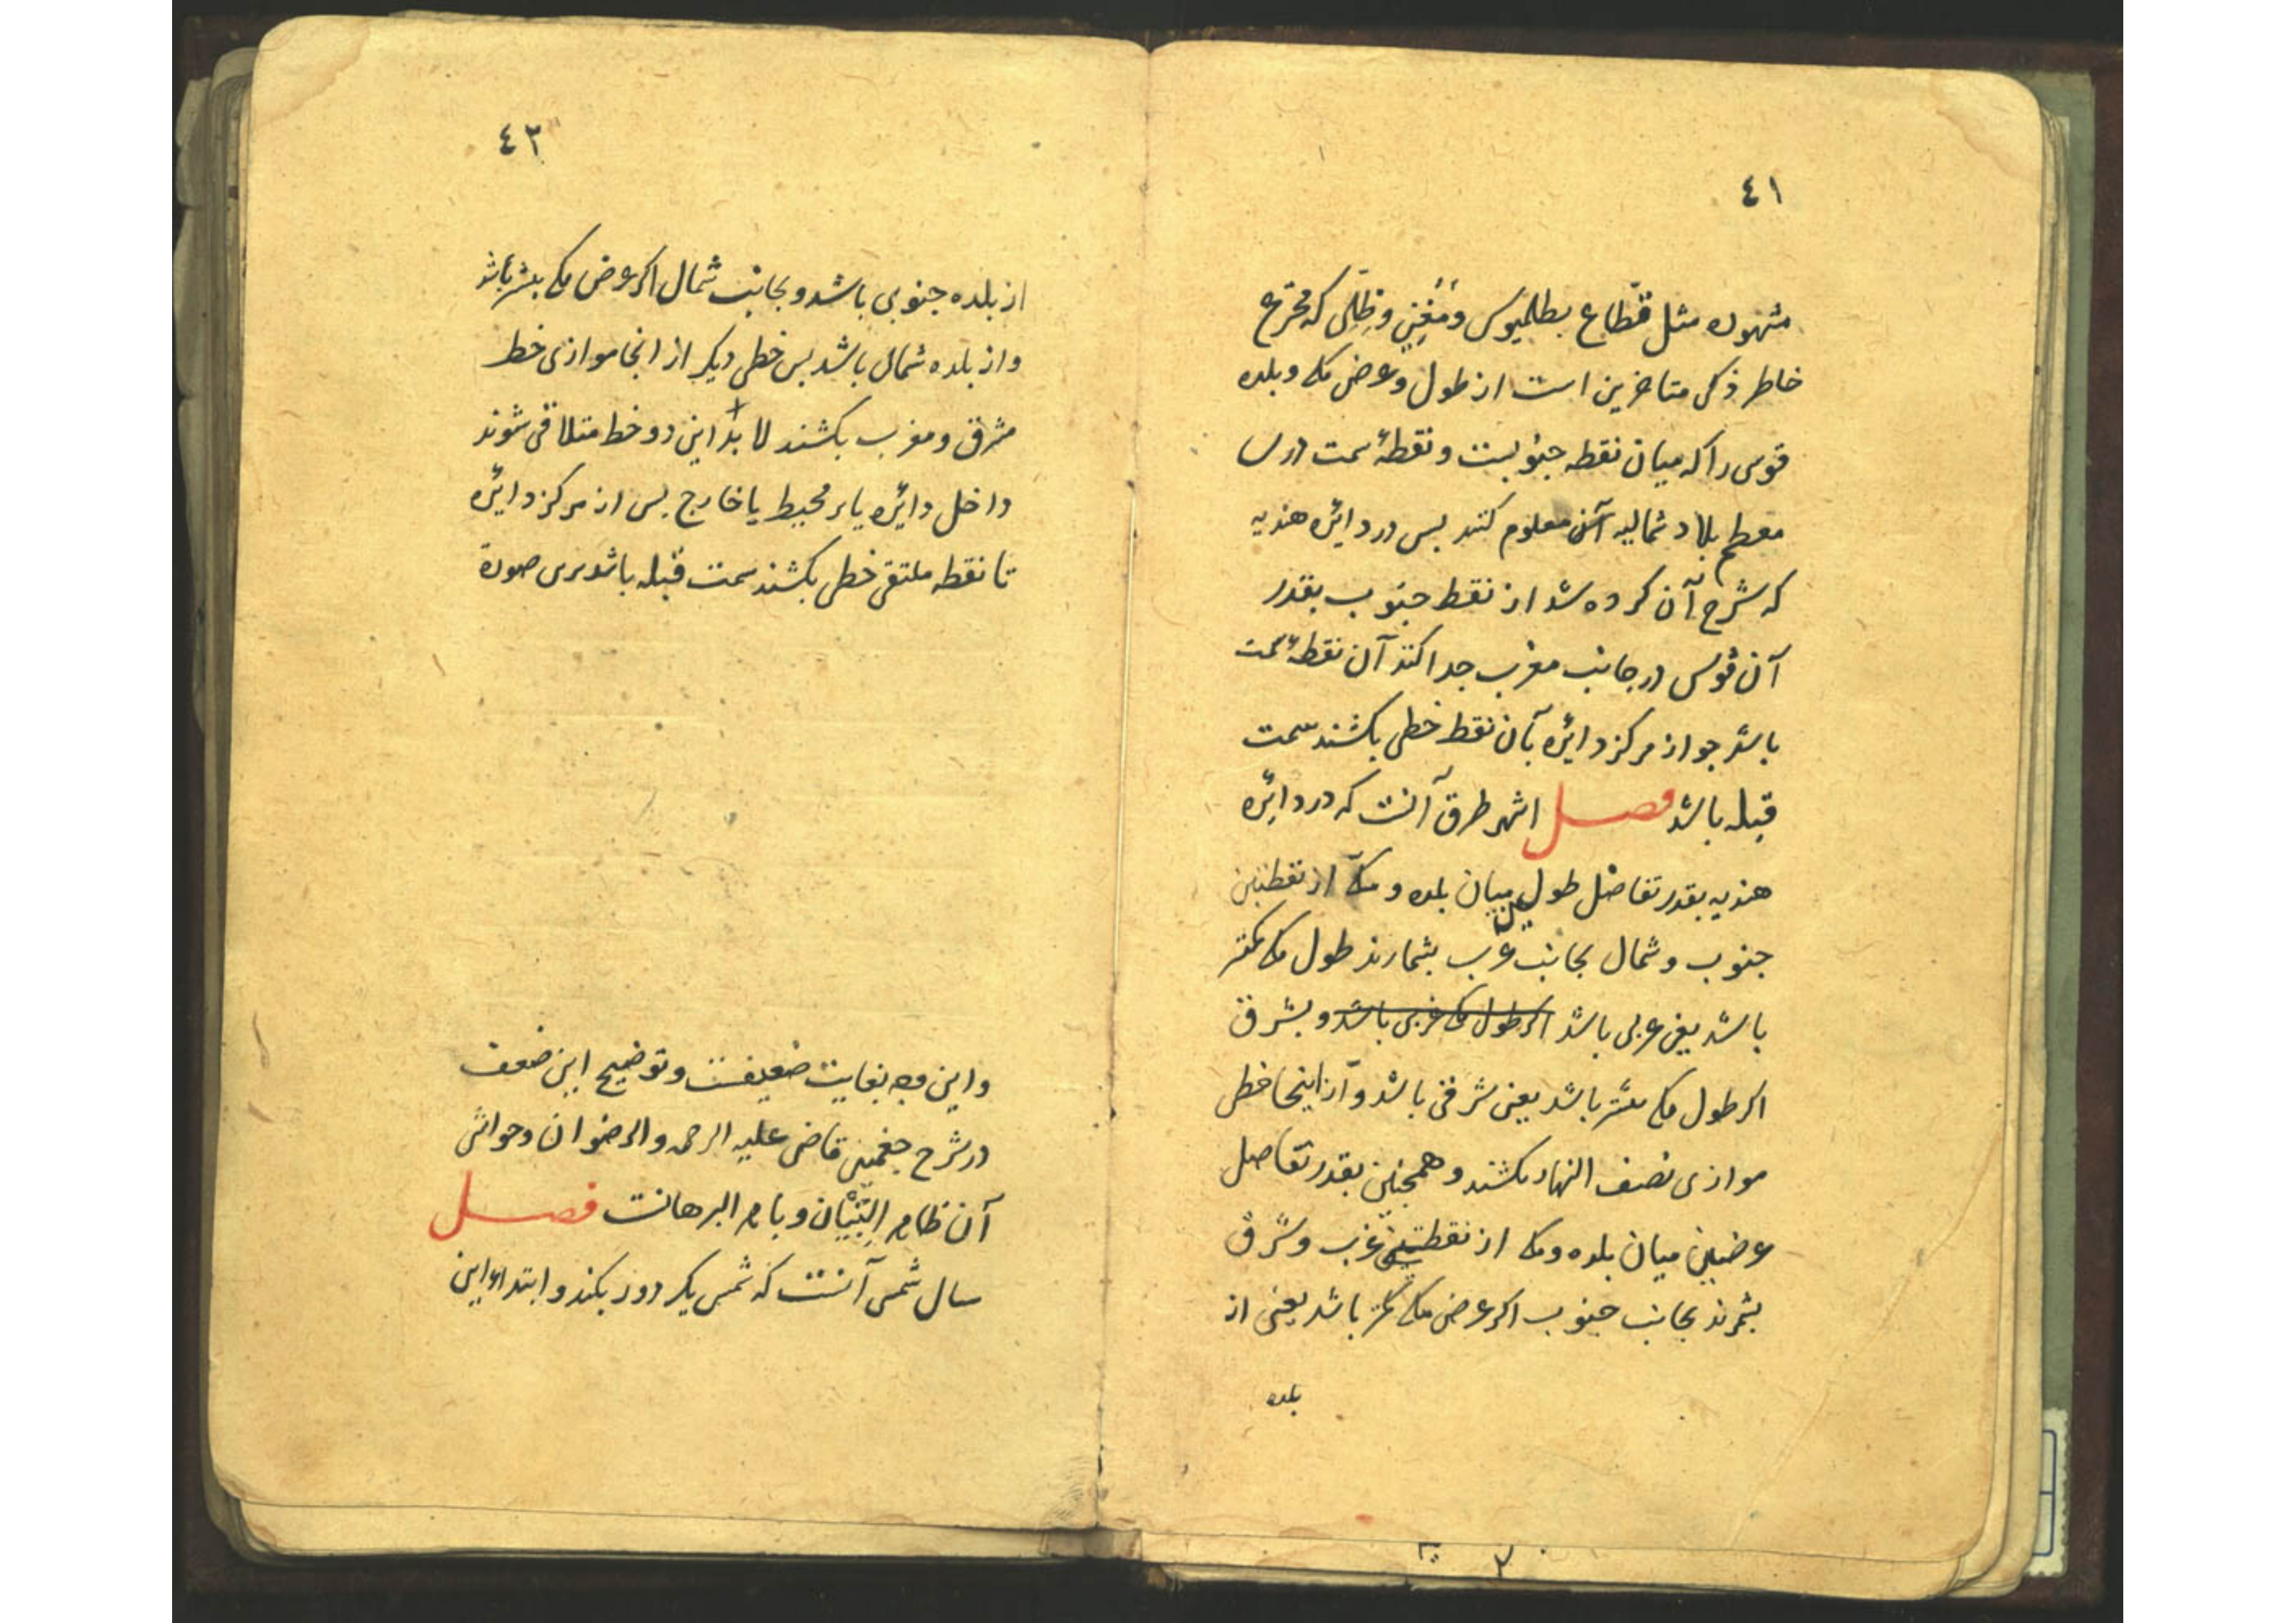 ٤١
مشهوره مثل قطّاع بطلمیوس و مُغنِی و ظِلّی که مخترع
خاطر ذکی متاخرین است از طول و عرض مکه و بلده
قوسی را که میان نقطه جنوبست و نقطهٔ سمت در
معظم بلاد شمالیه آن معلوم کنند پس در دایٔره هندیه
که شرح آن کرده شد از نقطه جنوب بقدر
آن قوس در جانب مغرب جدا کنند آن نقطهٔ سمت
باشد جو از مرکز دایٔره بآن نقط خطی بکشند سمت
قبله باشد فصل اشهر طرق آنست که در دایٔره
هندیه بقدر تفاضل طول میان بلده و مکه از نقطتین
جنوب و شمال بجانب غرب بشمارند طول مکه کمتر
باشد یعنی غربی باشد اکر طول مکه غربی باشد و بشرق
اکر طول مکه بیشتر باشد یعنی شرقی باشد و از اینجا خطی
موازی نصف النهار بکشند و همجنین بقدر تفاضل
عرضین میان بلده و مکه از نقطتین غرب و شرق
بشمرند بجانب جنوب اکر عرض مکه کمتر باشد یعنی از
بلده
٤٣
از بلده جنوبی باشد و بجانب شمال اکر عرض مکه بیشتر باشد
و از بلده شمالی باشد پس خطی دیکر از انجا موازی خط
مشرق و مغرب بکشند لا بدّ این دو خط متلاقی شوند
داخل دایٔره یا بر محیط یا خارج پس از مرکز دایٔره
تا نقطه ملتقی خطی بکشند سمت قبله باشد برین صورة
و این وجه بغایت ضعیفست و توضیح این ضعف
در شرح جغمینی قاضی علیه الرحمه و الرضوان و حواشی
آن ظاهر التِبْیَان و باهر البرهانست فصل
سال شمسی آنست که شمس یکدور بکند و ابتداء این